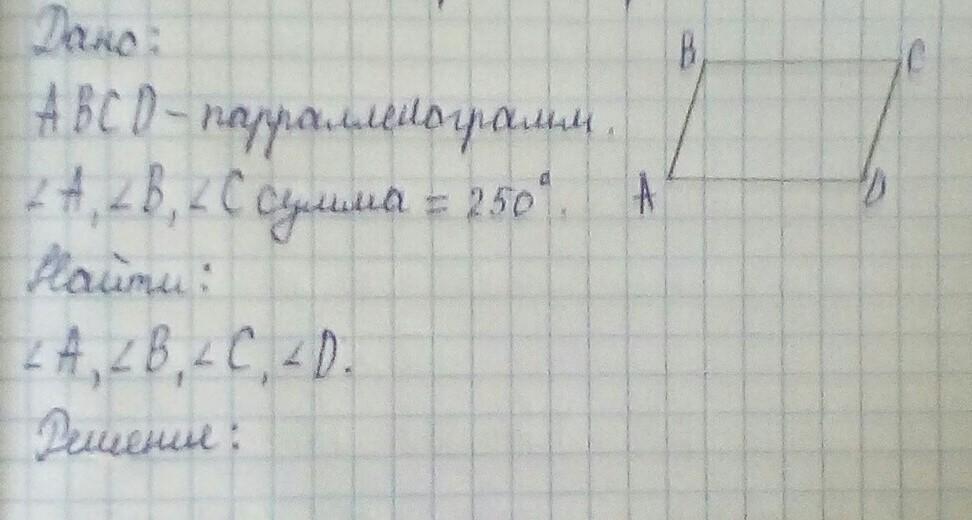 Дано:
B C
ABCD - парраллелограмм.
∠A, ∠B, ∠C сумма = 250°.
A D
Найти:
∠A, ∠B, ∠C, ∠D.
Решение: